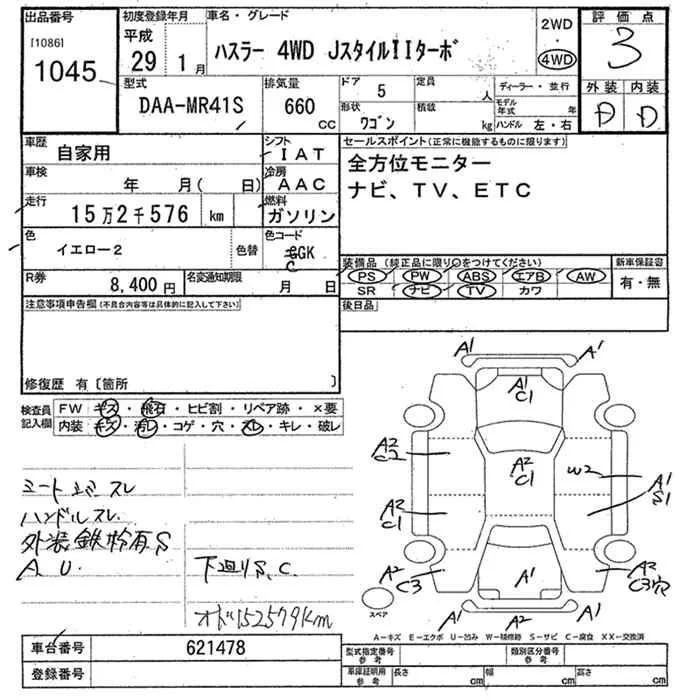 出品番号
[1086]
1045
初度登録年月
平成
29 1月
車名・グレード
ハスラー 4WD JスタイルIIターボ
2WD
・
4WD
評価点
3
外装 内装
D D
型式
DAA-MR41S
排気量
660 CC
ドア 5
定員 人
形状 ワゴン
積載 kg
ディーラー・並行
モデル年式 年
ハンドル 左・右
車歴
自家用
シフト
IAT
車検
年 月( 日)
冷房
AAC
走行
15万2千576 km
燃料
ガソリン
色
イエロー2
色替
色コード
GK
C
R券
8,400円
名変通知期限
月 日
セールスポイント(正常に機能するものに限ります)
全方位モニター
ナビ、TV、ETC
装備品(純正品に限り○をつけてください)
新車保証書
PS PW ABS エアB AW
SR ナビ TV カワ
有・無
後日品
注意事項申告欄(不具合内容等は具体的に記入して下さい)
修復歴 有〔箇所 〕
検査員記入欄
FW キズ・飛石・ヒビ割・リペア跡・×要
内装 キズ・汚レ・コゲ・穴・スレ・キレ・破レ
シート スレ
ハンドルスレ.
外装鉄粉有S
A U.
下廻りS、C.
オド152579km
A1 A1
A1
C1
A2
C2
A2
C1
W2
A1
S1
A2
C1
A2
C3
A1
A2
C3穴
A1 A2 A1
スペア
A-キズ E-エクボ U-凹み W-補修跡 S-サビ C-腐食 XX-交換済
車台番号
621478
登録番号
型式指定番号
参考
類別区分番号
参考
車庫証明用
参考
長さ cm
幅 cm
高さ cm